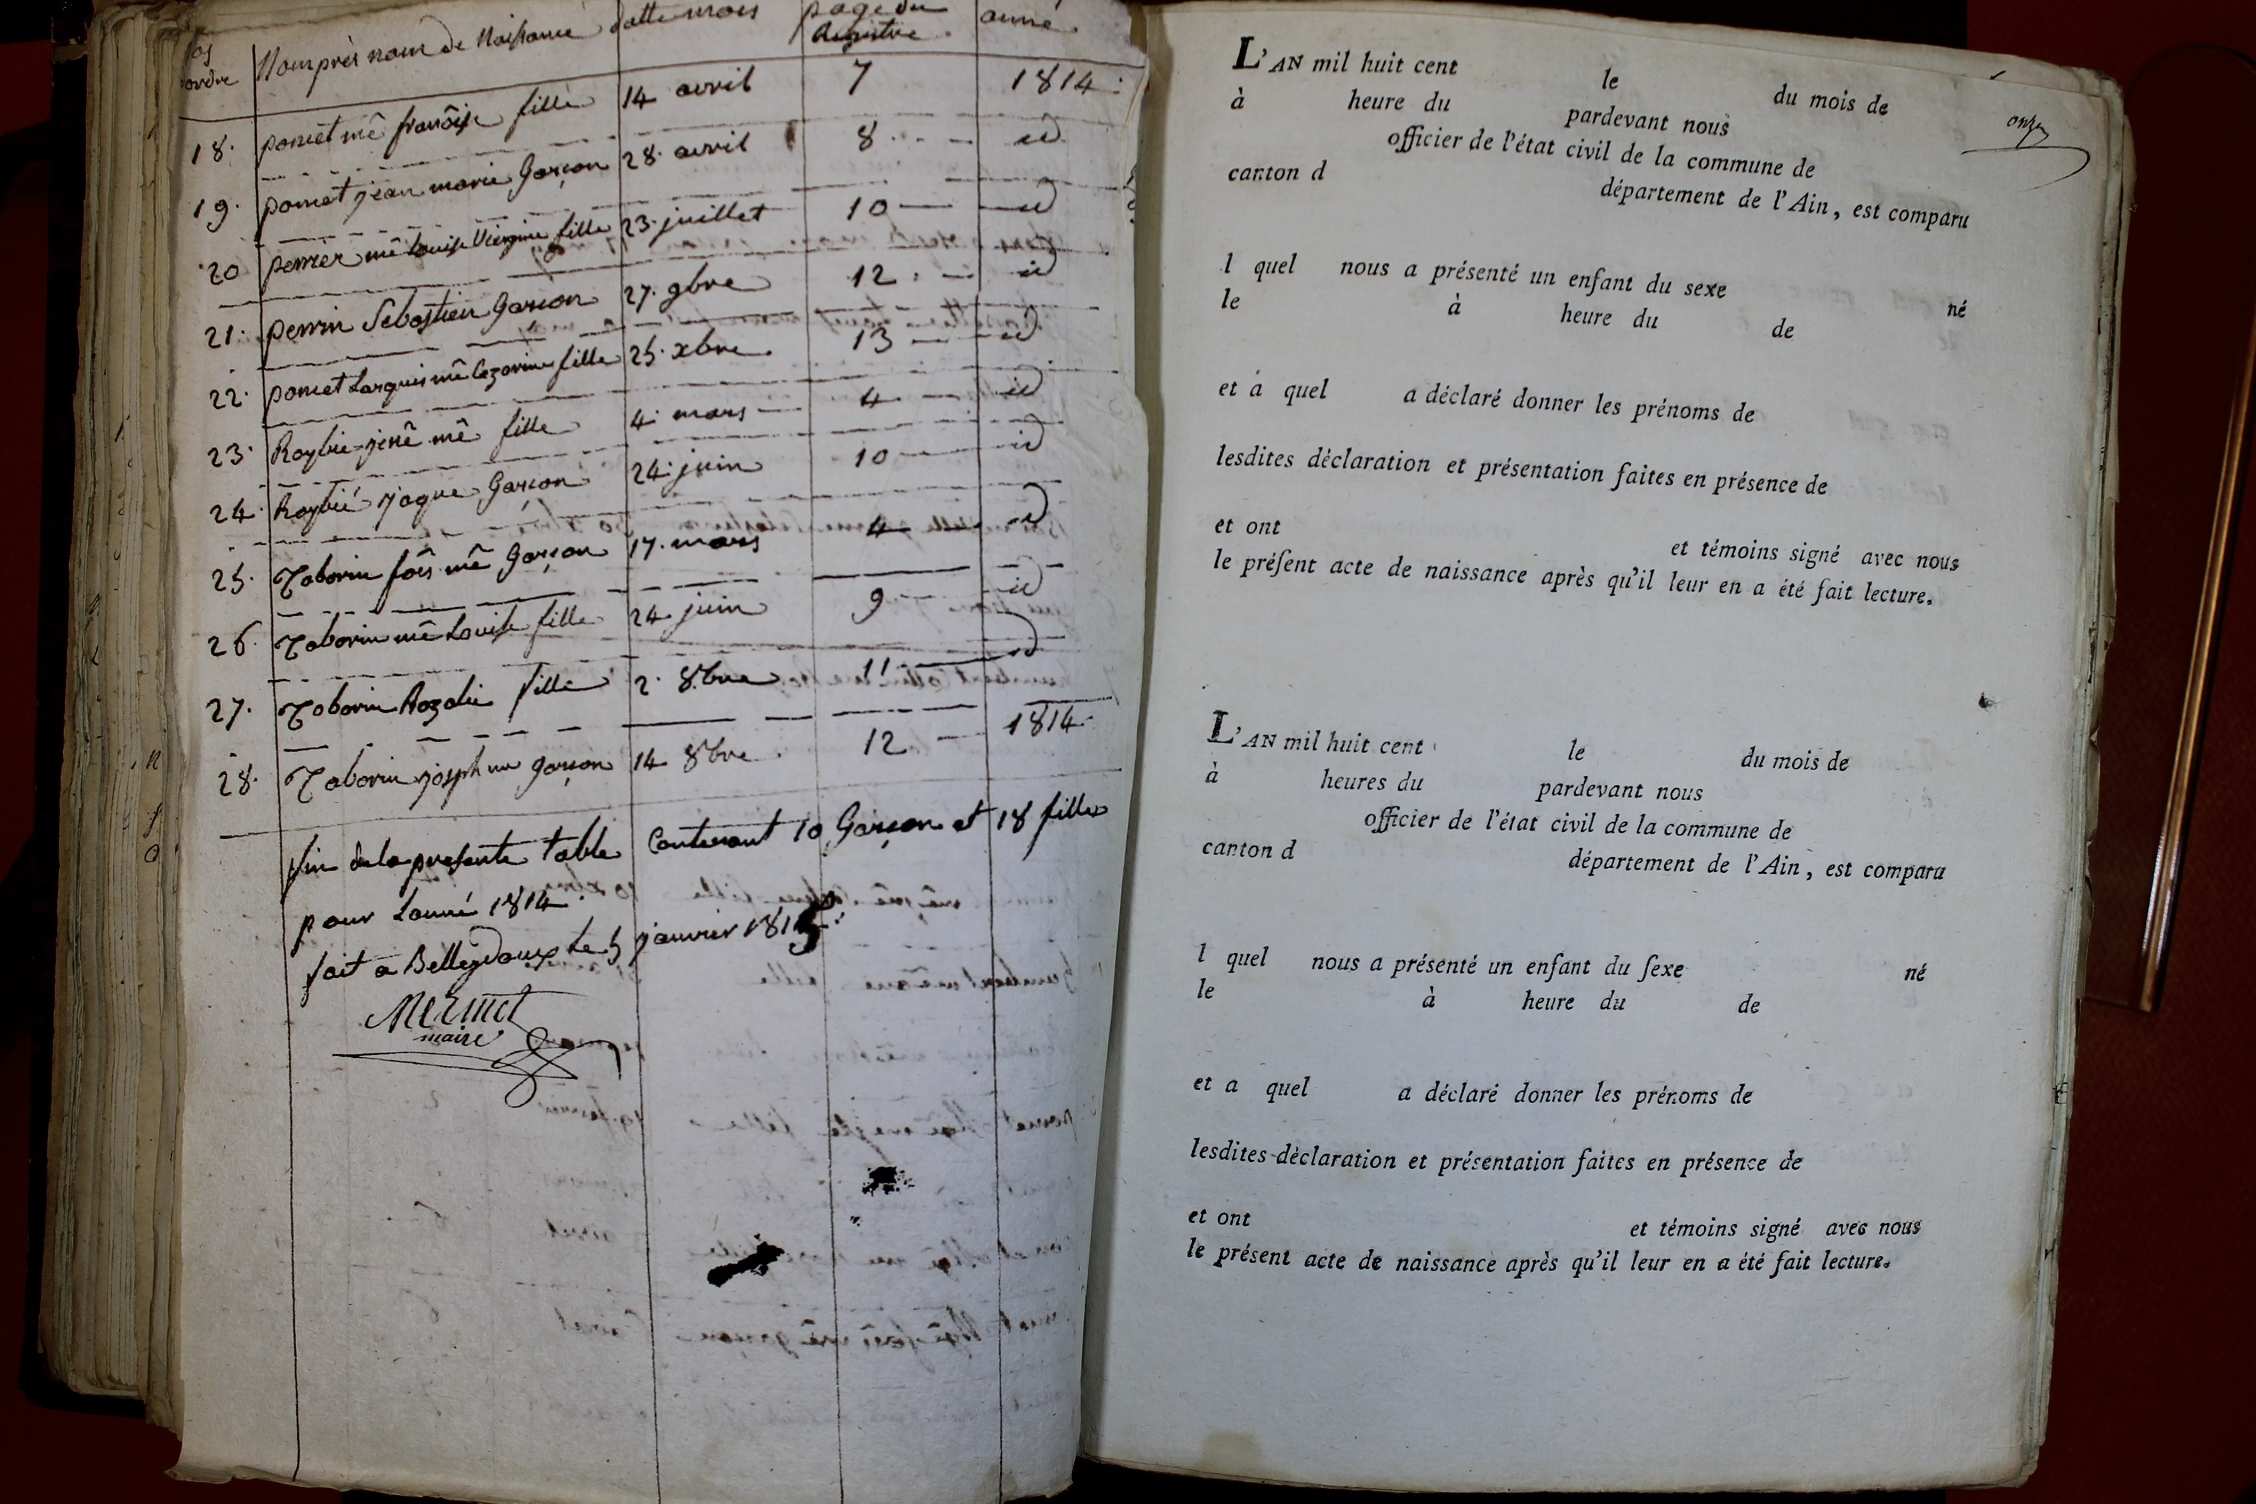 Nos ordre | Nom près nom de Naissance | datte mois | page du Registre | année
18. poncet mê franôise fille 14 avril 7 1814.
19. poncet jean marie Garçon 28. avril 8 id
20 perrier mê Louise Viergine fille 23. juillet 10 id
21. perrin Sebastien Garçon 27. 9bre 12 id
22. poncet Larguis mê Cezarine fille 25. xbre 13 id
23. Roybié jenê mê fille 4. mars 4 id
24. Roybié jaque Garçon 24. juin 10 id
25. Taborin fôis mê Garçon 17. mars 4 id
26. Taborin mê Louise fille 24 juin 9 id
27. Taborin Rozalie fille 2. 8bre 11 id
28. Taborin joseph garçon 14 8bre 12 1814.
fin de la presente table Contenant 10 Garçon et 18 filles
pour Lanné 1814.
fait a Belleydoux Le 5 janvier 1815.
Mermet
maire
onze
L'AN mil huit cent le du mois de
à heure du pardevant nous
officier de l'état civil de la commune de
canton d département de l'Ain, est comparu
l quel nous a présenté un enfant du sexe né
le à heure du de
et à quel a déclaré donner les prénoms de
lesdites déclaration et présentation faites en présence de
et ont et témoins signé avec nous
le préſent acte de naissance après qu'il leur en a été fait lecture.
L'AN mil huit cent le du mois de
à heures du pardevant nous
officier de l'état civil de la commune de
canton d département de l'Ain, est comparu
l quel nous a présenté un enfant du ſexe né
le à heure du de
et a quel a déclaré donner les prénoms de
lesdites déclaration et présentation faites en présence de
et ont et témoins signé avec nous
le présent acte de naissance après qu'il leur en a été fait lecture.